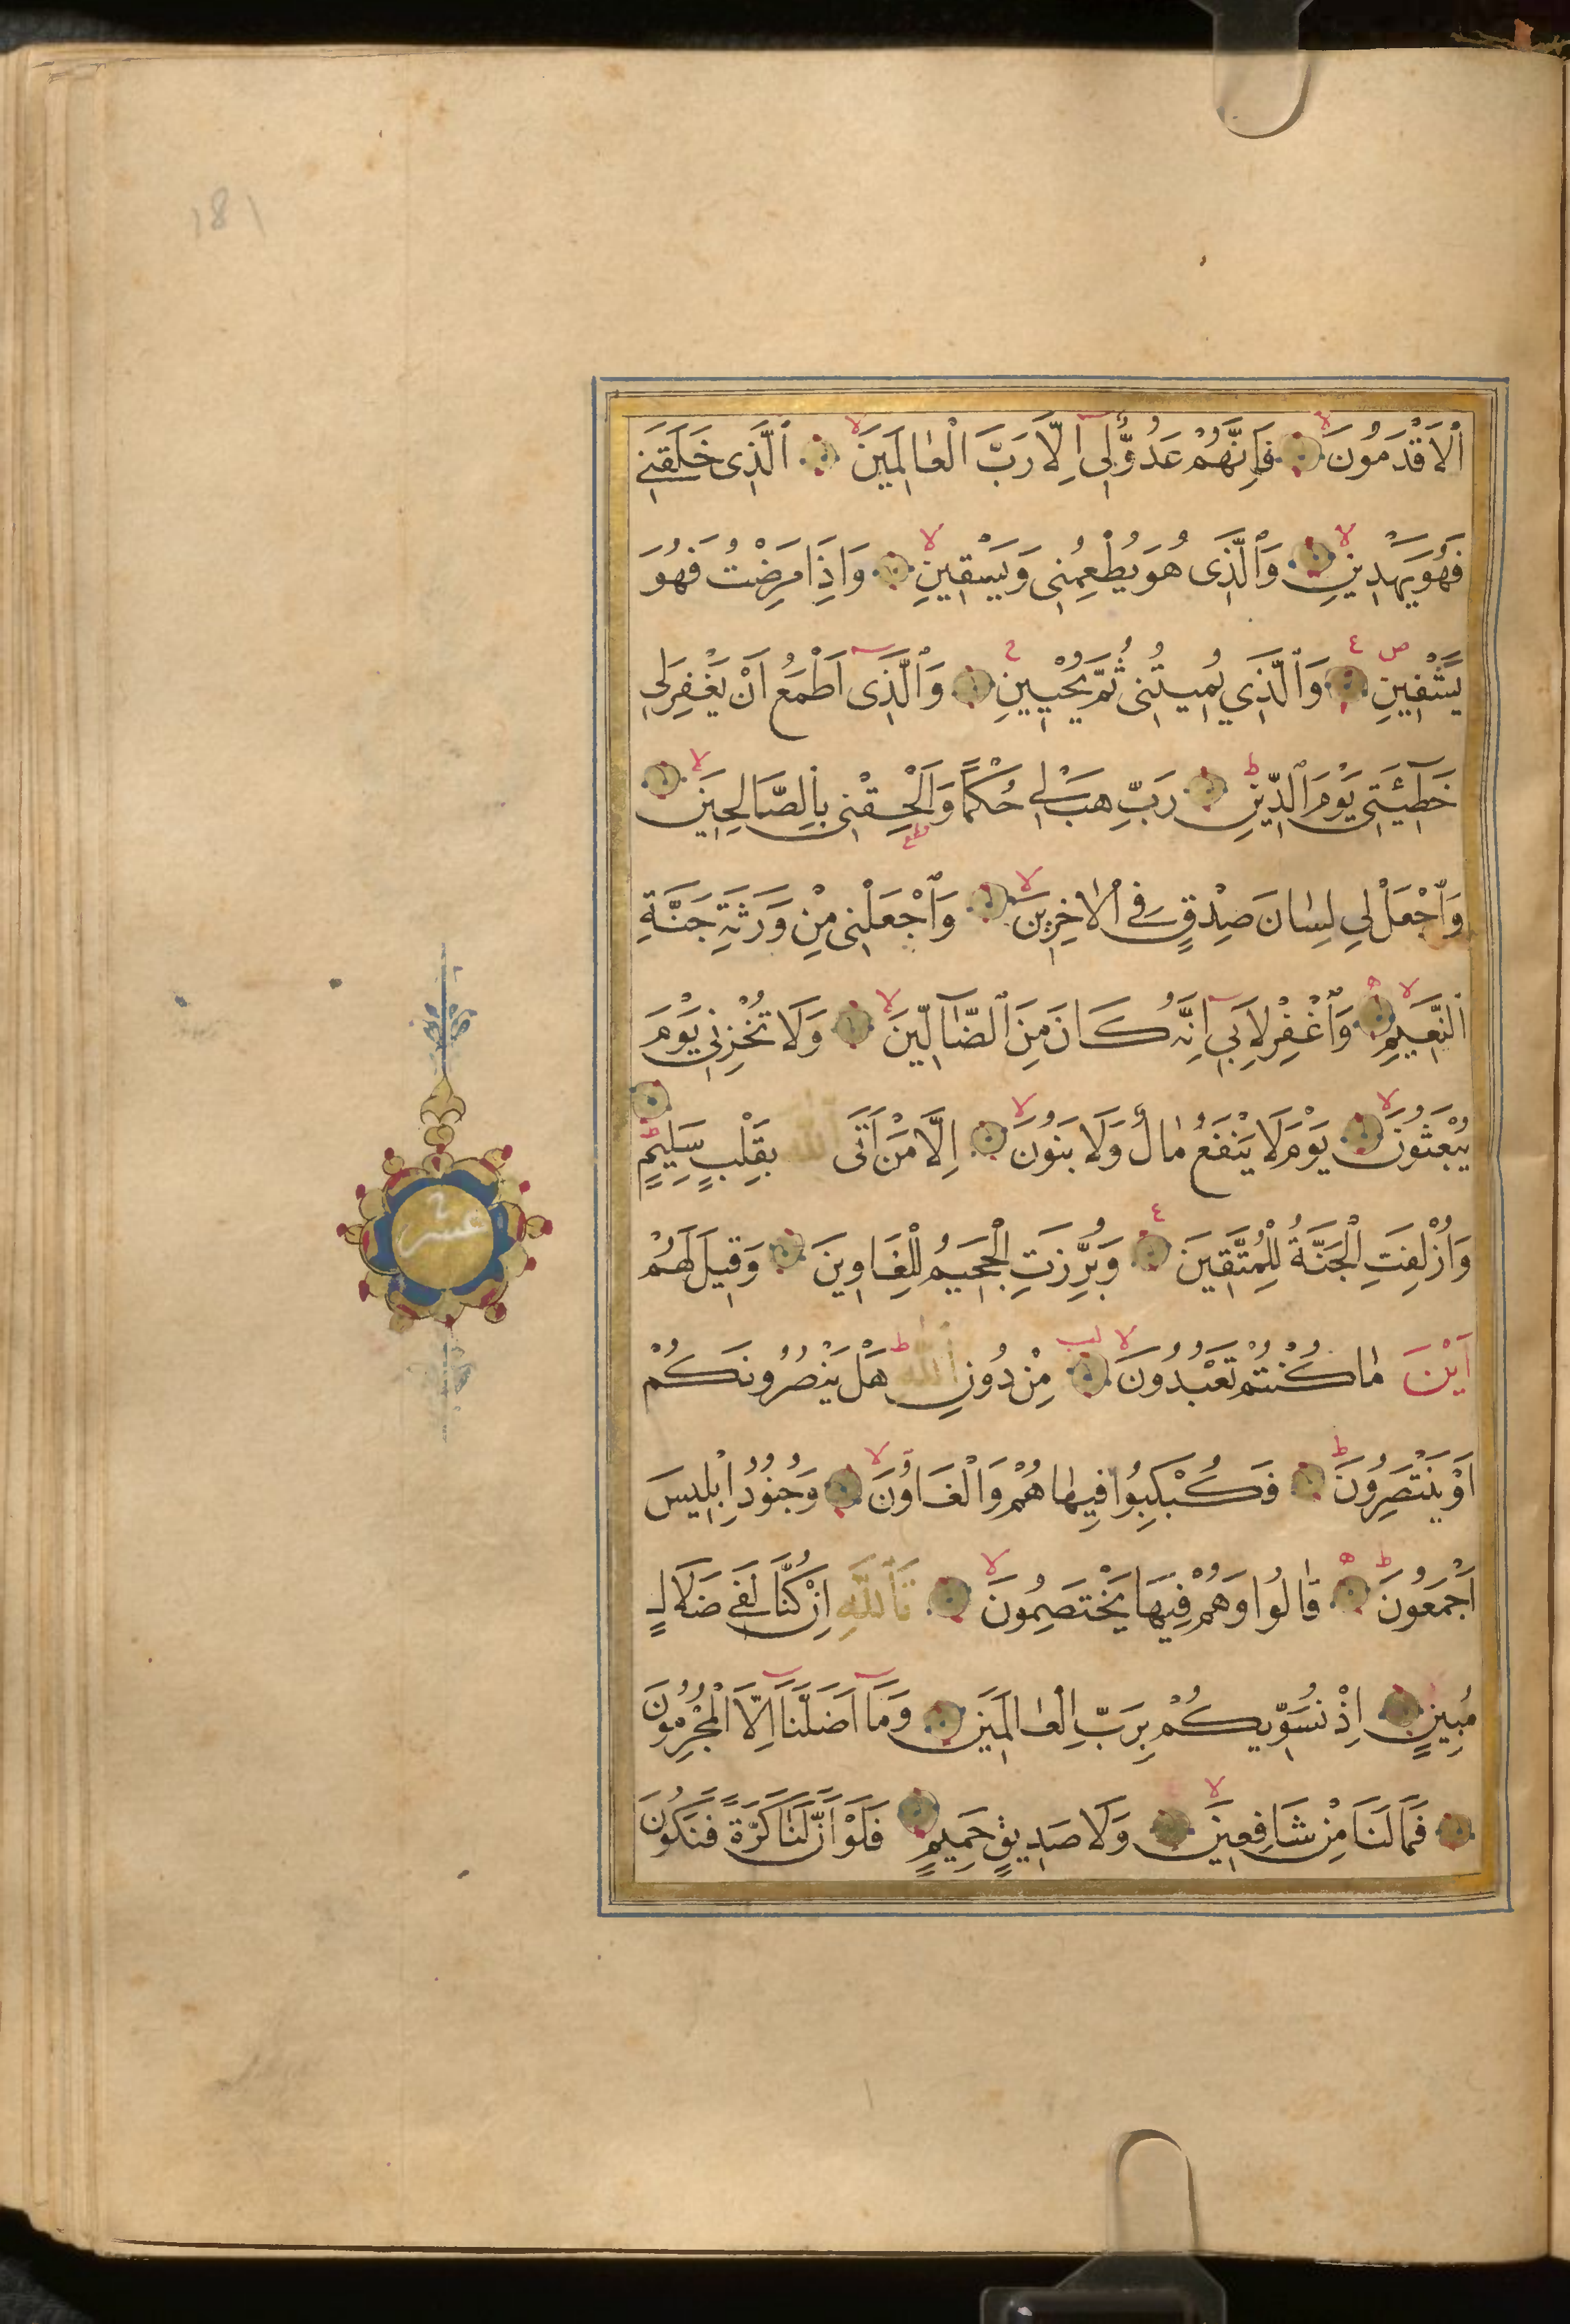 181
اَلْاَقْدَمُونَ فَاِنَّهُمْ عَدُوٌّ لِى اِلَّا رَبَّ الْعَالَمِينَ اَلَّذِى خَلَقَنِى
فَهُوَ يَهْدِينِ وَالَّذِى هُوَ يُطْعِمُنِى وَيَسْقِينِ وَاِذَا مَرِضْتُ فَهُوَ
يَشْفِينِ وَالَّذِي يُمِيتُنِى ثُمَّ يُحْيِينِ وَالَّذِى اَطْمَعُ اَنْ يَغْفِرَ لِى
خَطِيئَتِى يَوْمَ الدِّينِ رَبِّ هَبْ لِى حُكْمًا وَاَلْحِقْنِى بِالصَّالِحِينَ
وَاجْعَلْ لِي لِسَانَ صِدْقٍ فِى الْاٰخِرِينَ وَاجْعَلْنِى مِنْ وَرَثَةِ جَنَّةِ
النَّعِيمِ وَاغْفِرْ لِاَبِى اِنَّهُ كَانَ مِنَ الضَّالِّينَ وَلَا تُخْزِنِى يَوْمَ
يُبْعَثُونَ يَوْمَ لَا يَنْفَعُ مَالٌ وَلَا بَنُونَ اِلَّا مَنْ اَتَى اللّٰهَ بِقَلْبٍ سَلِيمٍ
وَاُزْلِفَتِ الْجَنَّةُ لِلْمُتَّقِينَ وَبُرِّزَتِ الْجَحِيمُ لِلْغَاوِينَ وَقِيلَ لَهُمْ
اَيْنَ مَا كُنْتُمْ تَعْبُدُونَ مِنْ دُونِ اللّٰهِ هَلْ يَنْصُرُونَكُمْ
اَوْ يَنْتَصِرُونَ فَكُبْكِبُوا فِيهَا هُمْ وَالْغَاوُنَ وَجُنُودُ اِبْلِيسَ
اَجْمَعُونَ قَالُوا وَهُمْ فِيهَا يَخْتَصِمُونَ تَاللّٰهِ اِنْ كُنَّا لَفِى ضَلَالٍ
مُبِينٍ اِذْ نُسَوِّيكُمْ بِرَبِّ الْعَالَمِينَ وَمَا اَضَلَّنَا اِلَّا الْمُجْرِمُونَ
فَمَا لَنَا مِنْ شَافِعِينَ وَلَا صَدِيقٍ حَمِيمٍ فَلَوْ اَنَّ لَنَا كَرَّةً فَنَكُونَ
عشر